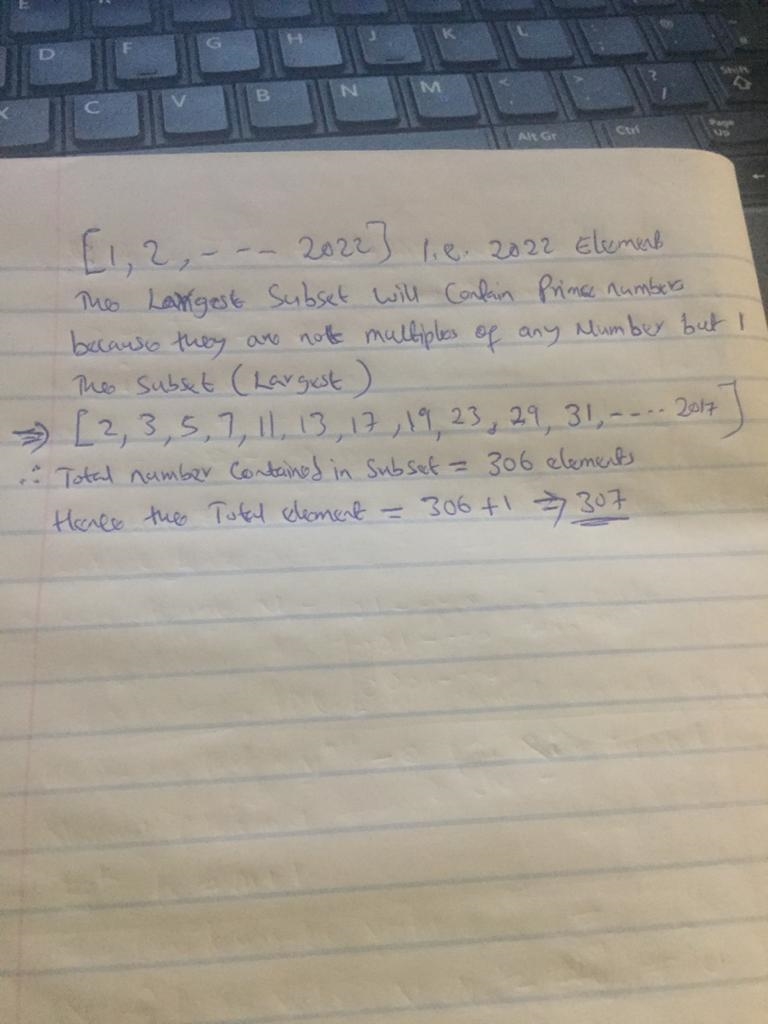 E
D F G H J K L : ; @
X C V B N M < , > . ? / Shift
Alt Gr Ctrl Page Up
[1, 2, - - - 2022] I.e. 2022 Element
The Largest Subset will Contain Prime numbers
because they are not multiples of any Number but 1
The Subset (Largest)
⇒ [2, 3, 5, 7, 11, 13, 17, 19, 23, 29, 31, ---- 2017]
∴ Total number Contained in Subset = 306 elements
Hence the Total element = 306 + 1 ⇒ 307